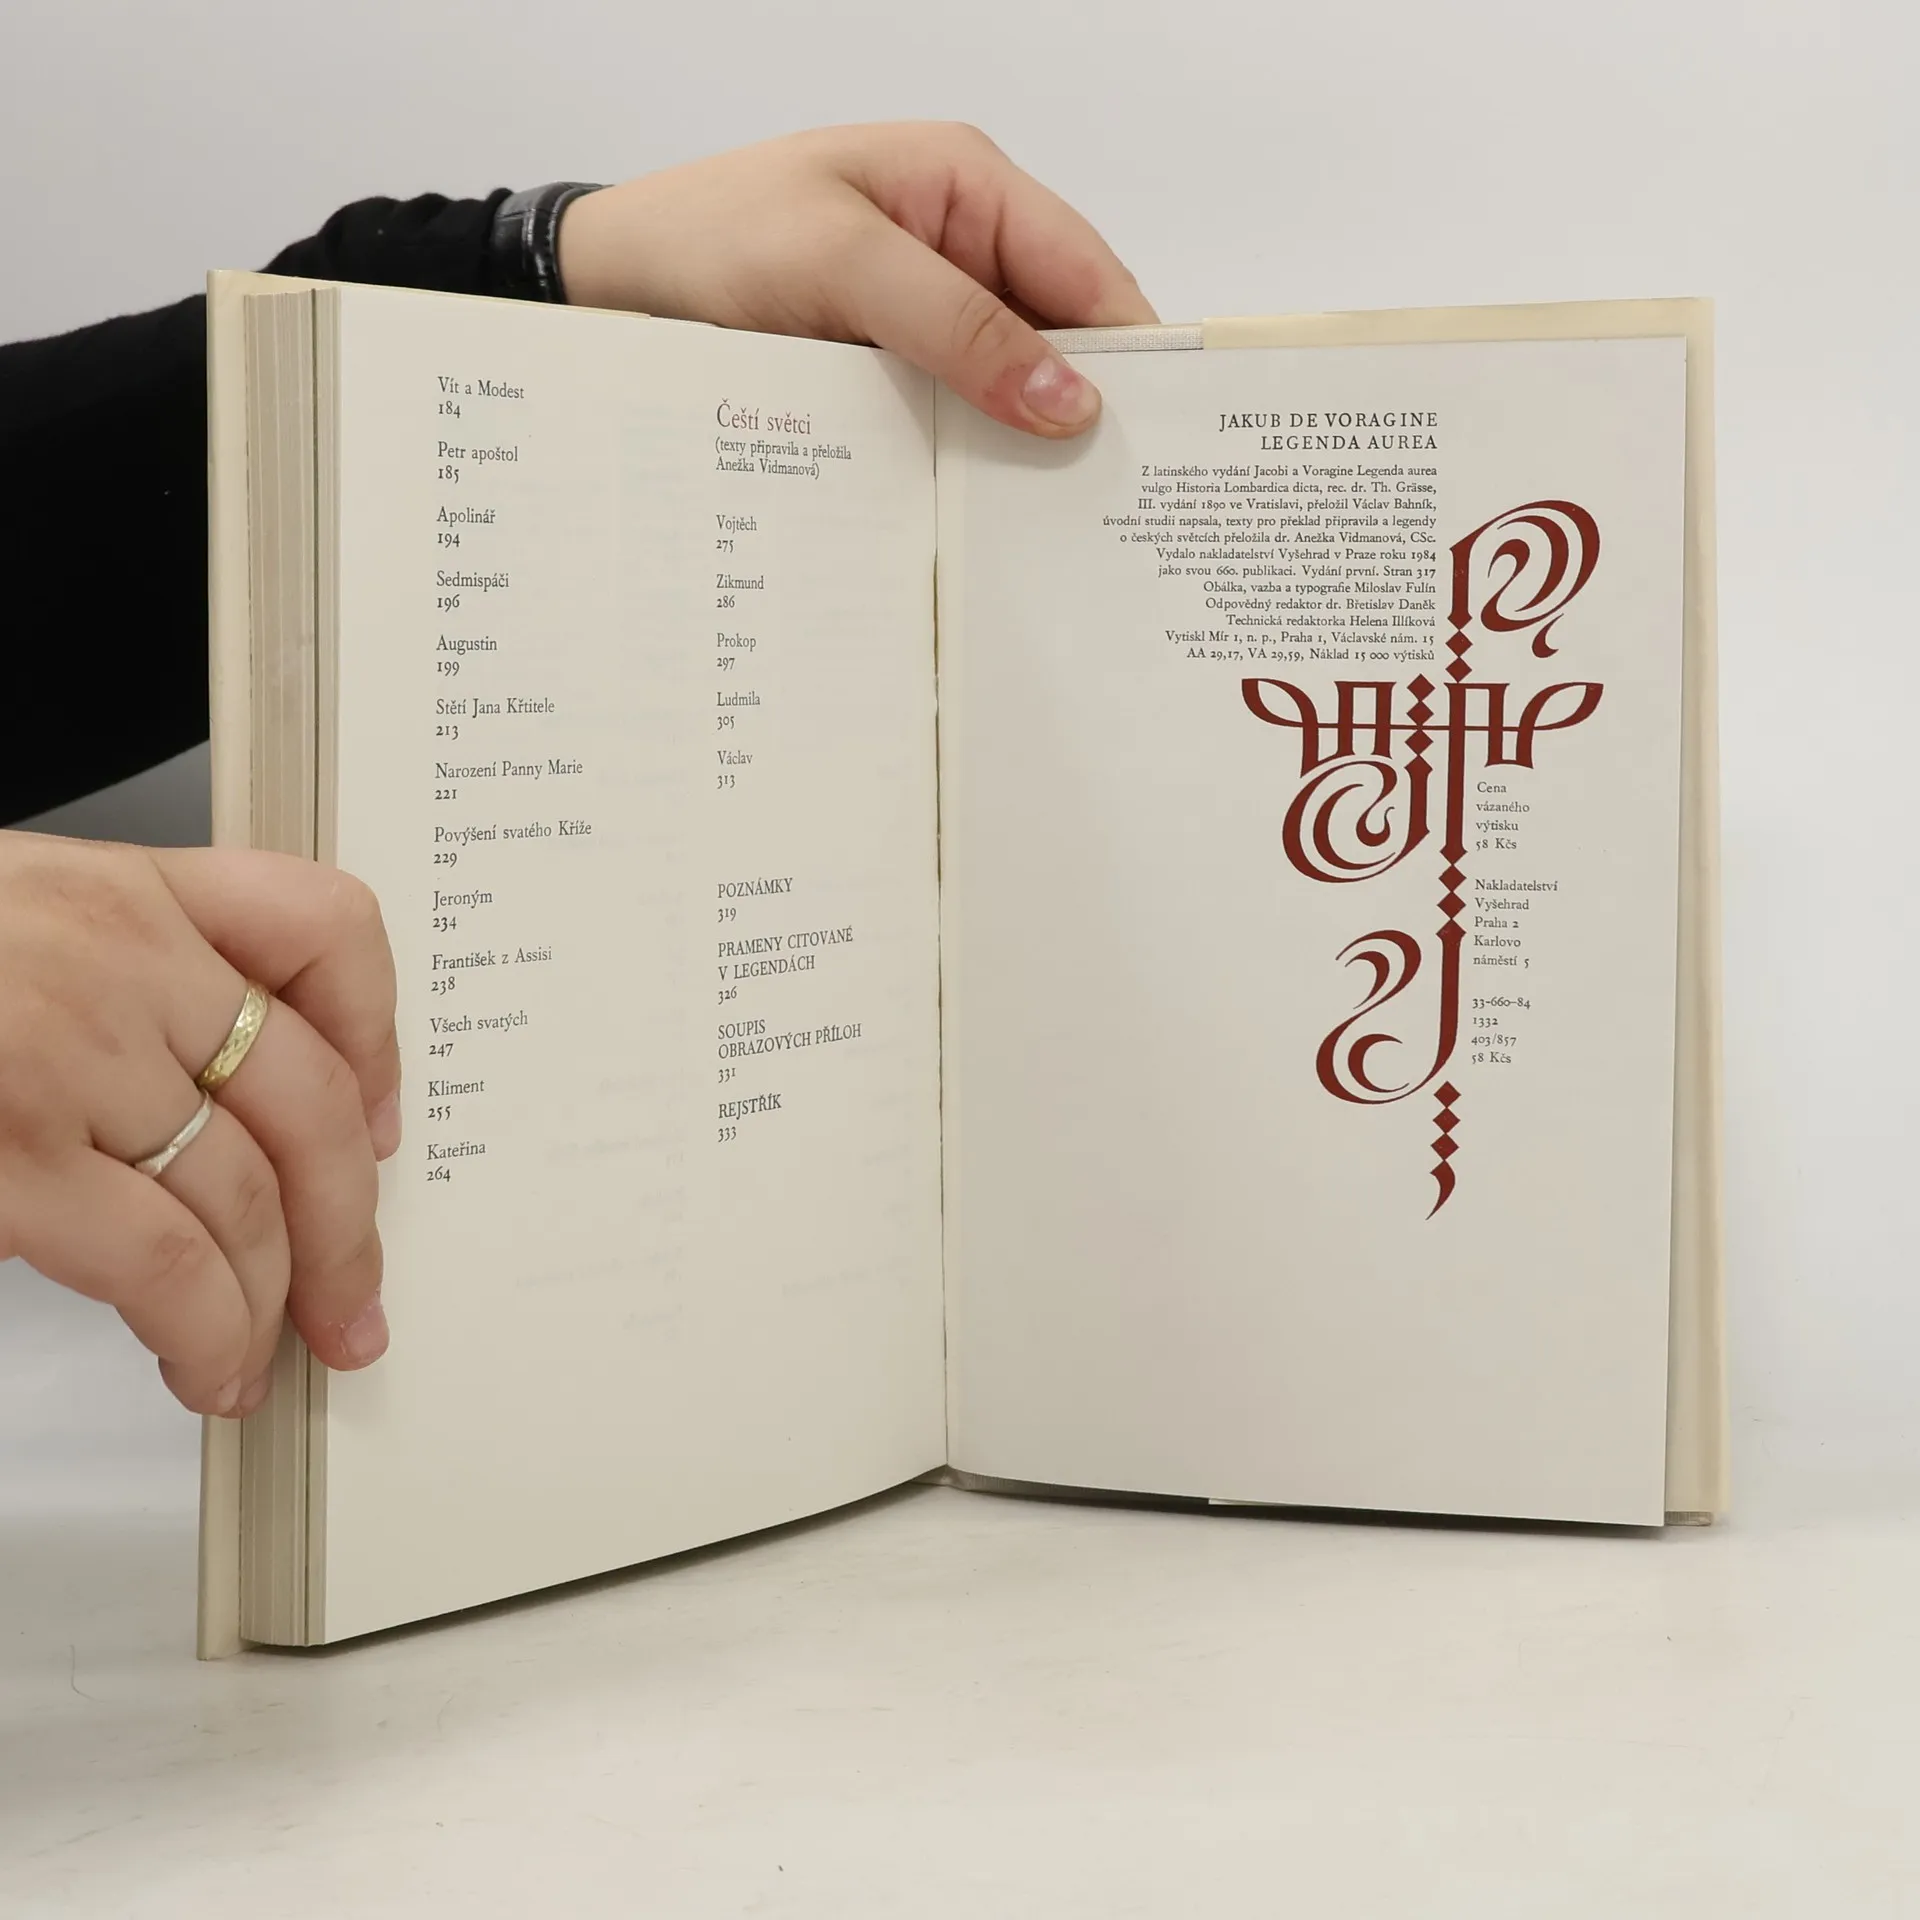 Vít a Modest
184
Petr apoštol
185
Apolinář
194
Sedmispáči
196
Augustin
199
Stětí Jana Křtitele
213
Narození Panny Marie
221
Povýšení svatého Kříže
229
Jeroným
234
František z Assisi
238
Všech svatých
247
Kliment
255
Kateřina
264
Čeští světci
(texty připravila a přeložila
Anežka Vidmanová)
Vojtěch
275
Zikmund
286
Prokop
297
Ludmila
305
Václav
313
POZNÁMKY
319
PRAMENY CITOVANÉ
V LEGENDÁCH
326
SOUPIS
OBRAZOVÝCH PŘÍLOH
331
REJSTŘÍK
333
JAKUB DE VORAGINE
LEGENDA AUREA
Z latinského vydání Jacobi a Voragine Legenda aurea
vulgo Historia Lombardica dicta, rec. dr. Th. Grässe,
III. vydání 1890 ve Vratislavi, přeložil Václav Bahník,
úvodní studii napsala, texty pro překlad připravila a legendy
o českých světcích přeložila dr. Anežka Vidmanová, CSc.
Vydalo nakladatelství Vyšehrad v Praze roku 1984
jako svou 660. publikaci. Vydání první. Stran 317
Obálka, vazba a typografie Miloslav Fulín
Odpovědný redaktor dr. Břetislav Daněk
Technická redaktorka Helena Illíková
Vytiskl Mír 1, n. p., Praha 1, Václavské nám. 15
AA 29,17, VA 29,59, Náklad 15 000 výtisků
Cena
vázaného
výtisku
58 Kčs
Nakladatelství
Vyšehrad
Praha 2
Karlovo
náměstí 5
33-660-84
1332
403/857
58 Kčs